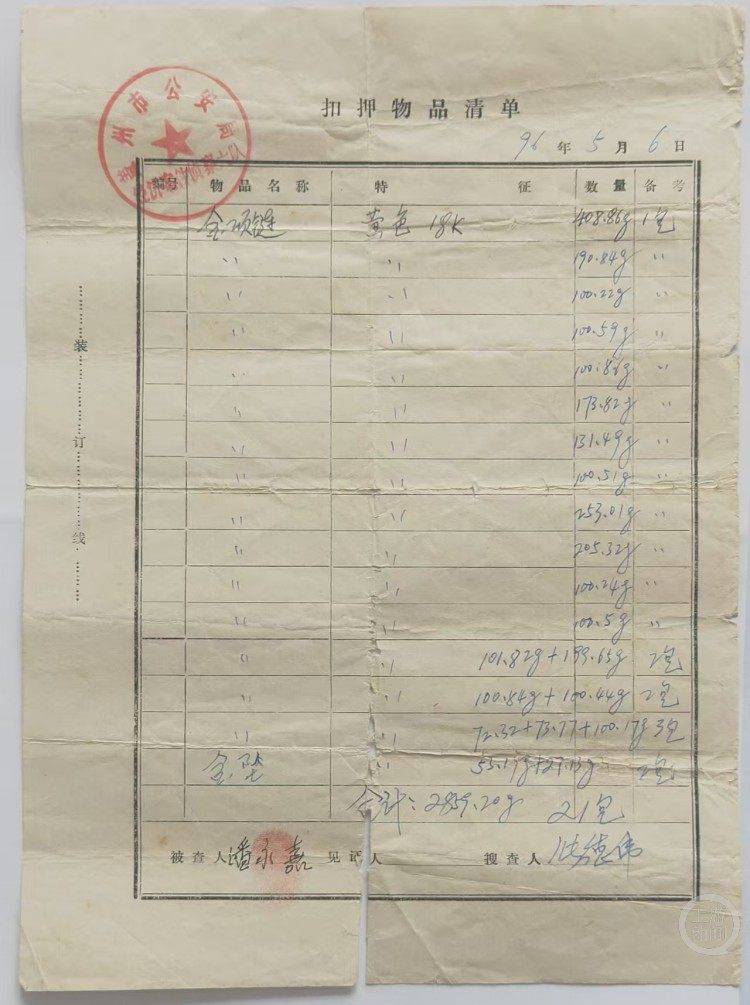 州市公安局
扣押物品清单
96年5月6日
编号 物品名称 特征 数量 备考
金项链 黄色 18K 408.86g 1包
〃 〃 190.84g 〃
〃 〃 100.22g 〃
〃 〃 100.59g 〃
〃 〃 100.86g 〃
〃 〃 173.82g 〃
〃 〃 131.49g 〃
〃 〃 100.51g 〃
〃 〃 253.01g 〃
〃 〃 205.32g 〃
〃 〃 100.24g 〃
〃 〃 100.5g 〃
〃 〃 101.82g+199.65g 2包
〃 〃 100.84g+100.44g 2包
〃 〃 72.32+73.77+100.17g 3包
金坠 〃 53.17g+27.13g 2包
合计:2859.20g 21包
被查人 潘永嘉 见证人 搜查人 德伟
装订线
上游新闻